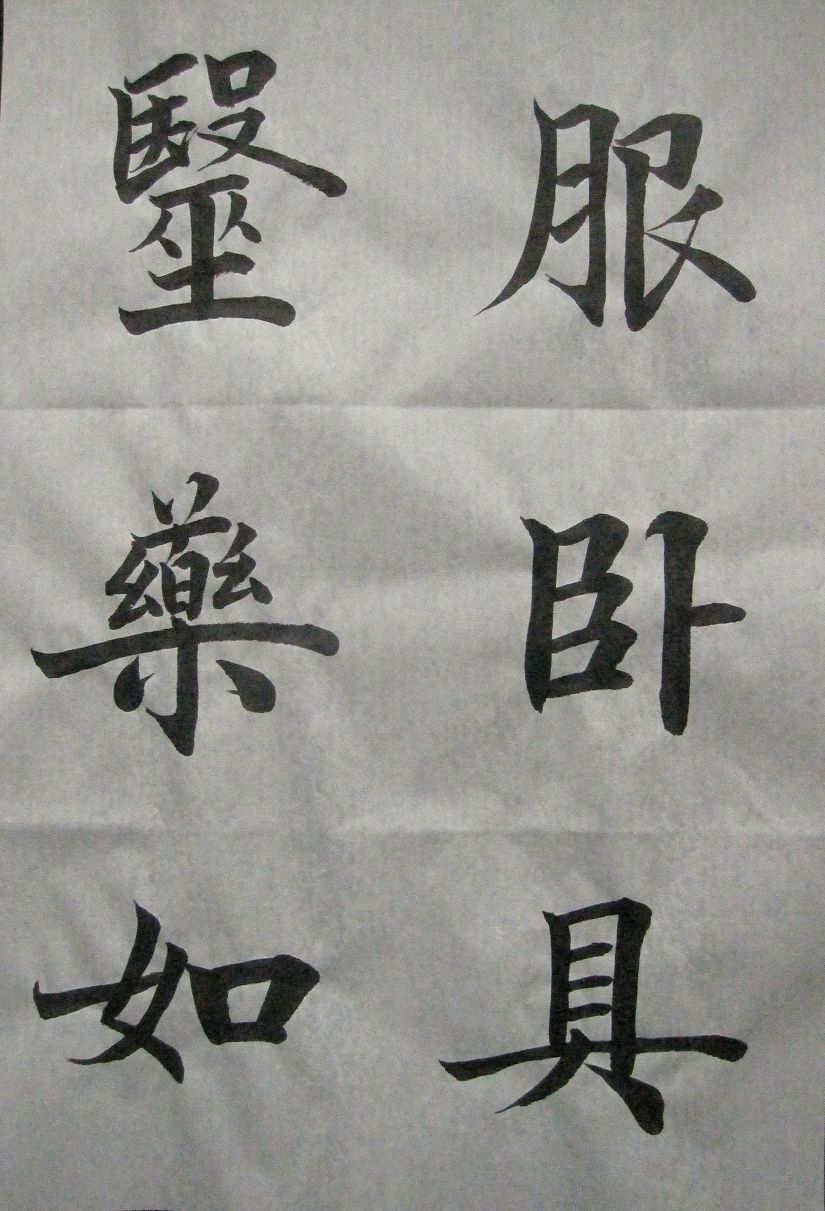 服卧具
毉藥如